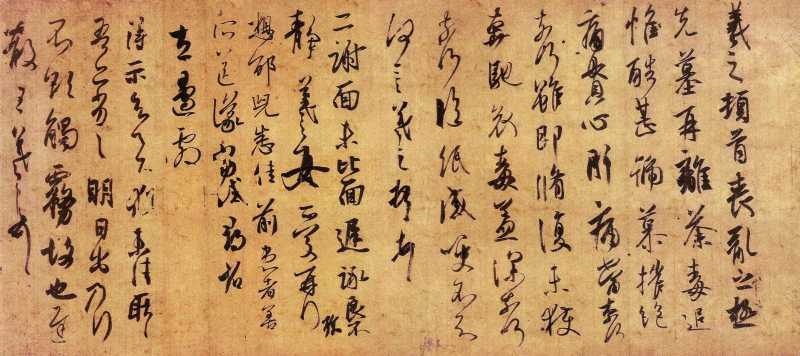 羲之頓首喪亂之極
先墓再離荼毒追
惟酷甚號慕摧絕
痛貫心肝痛當奈何
奈何雖即脩復未獲
奔馳哀毒益深奈何
奈何臨紙感哽不知
何言羲之頓首頓首
二謝面未比面遲詠良不
靜羲之女愛愛再拜
想邵兒悉佳前患者善
所送議當試尋省
左邊劇
得示知足下猶未佳耿耿
吾亦劣劣明日出乃行
不欲觸霧故也遲
散王羲之頓首